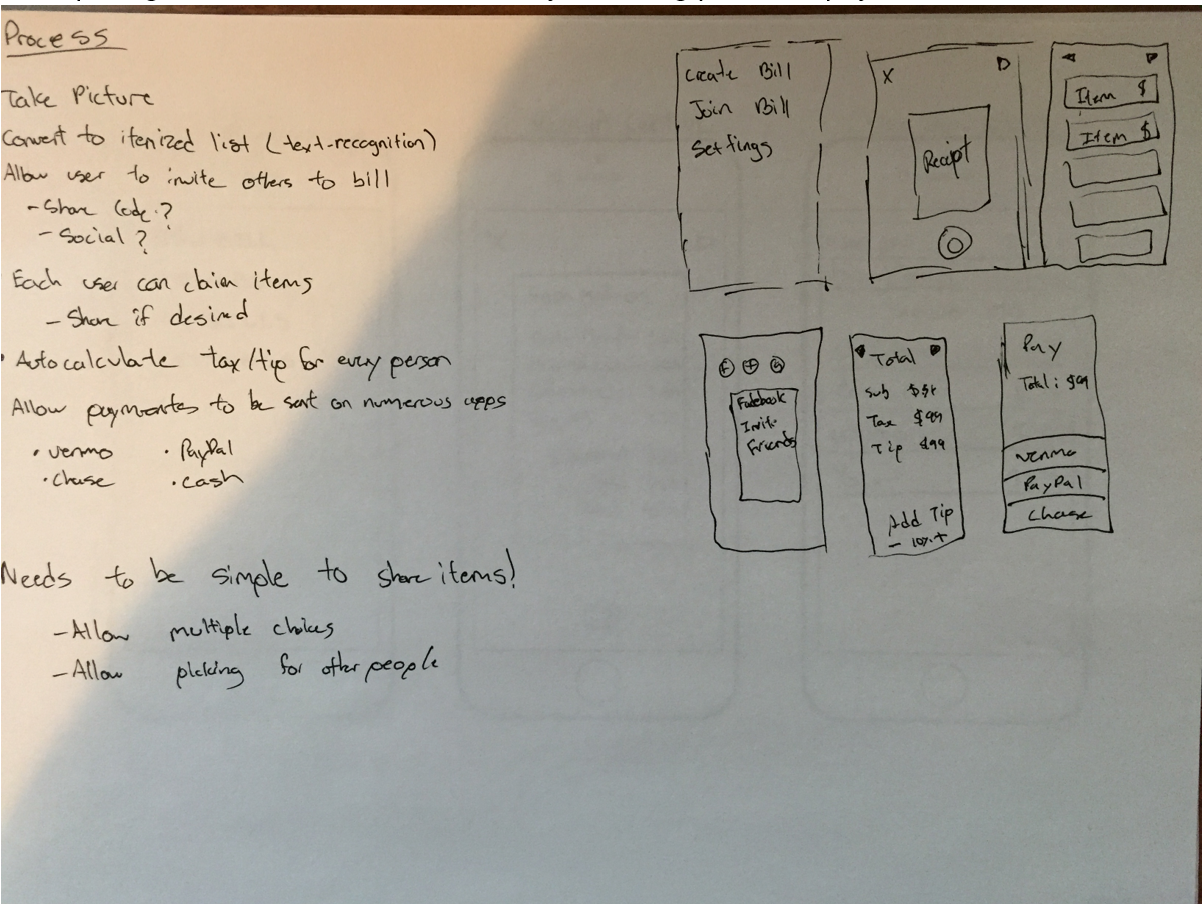 Process
Take Picture
Convert to itemized list (text-recognition)
Allow user to invite others to bill
- Share Code?
- Social?
Each user can claim items
- Share if desired
• Autocalculate tax/tip for every person
Allow paymentes to be sent on numerous apps
• venmo • PayPal
• Chase • cash
Needs to be simple to share items!
- Allow multiple choices
- Allow picking for other people
Create Bill
Join Bill
Settings
X
Receipt
Item $
Item $
Facebook
Invite
Friends
Total
Sub
Tax $99
Tip $99
Add Tip
- 10% +
Pay
Total: $99
venmo
PayPal
Chase